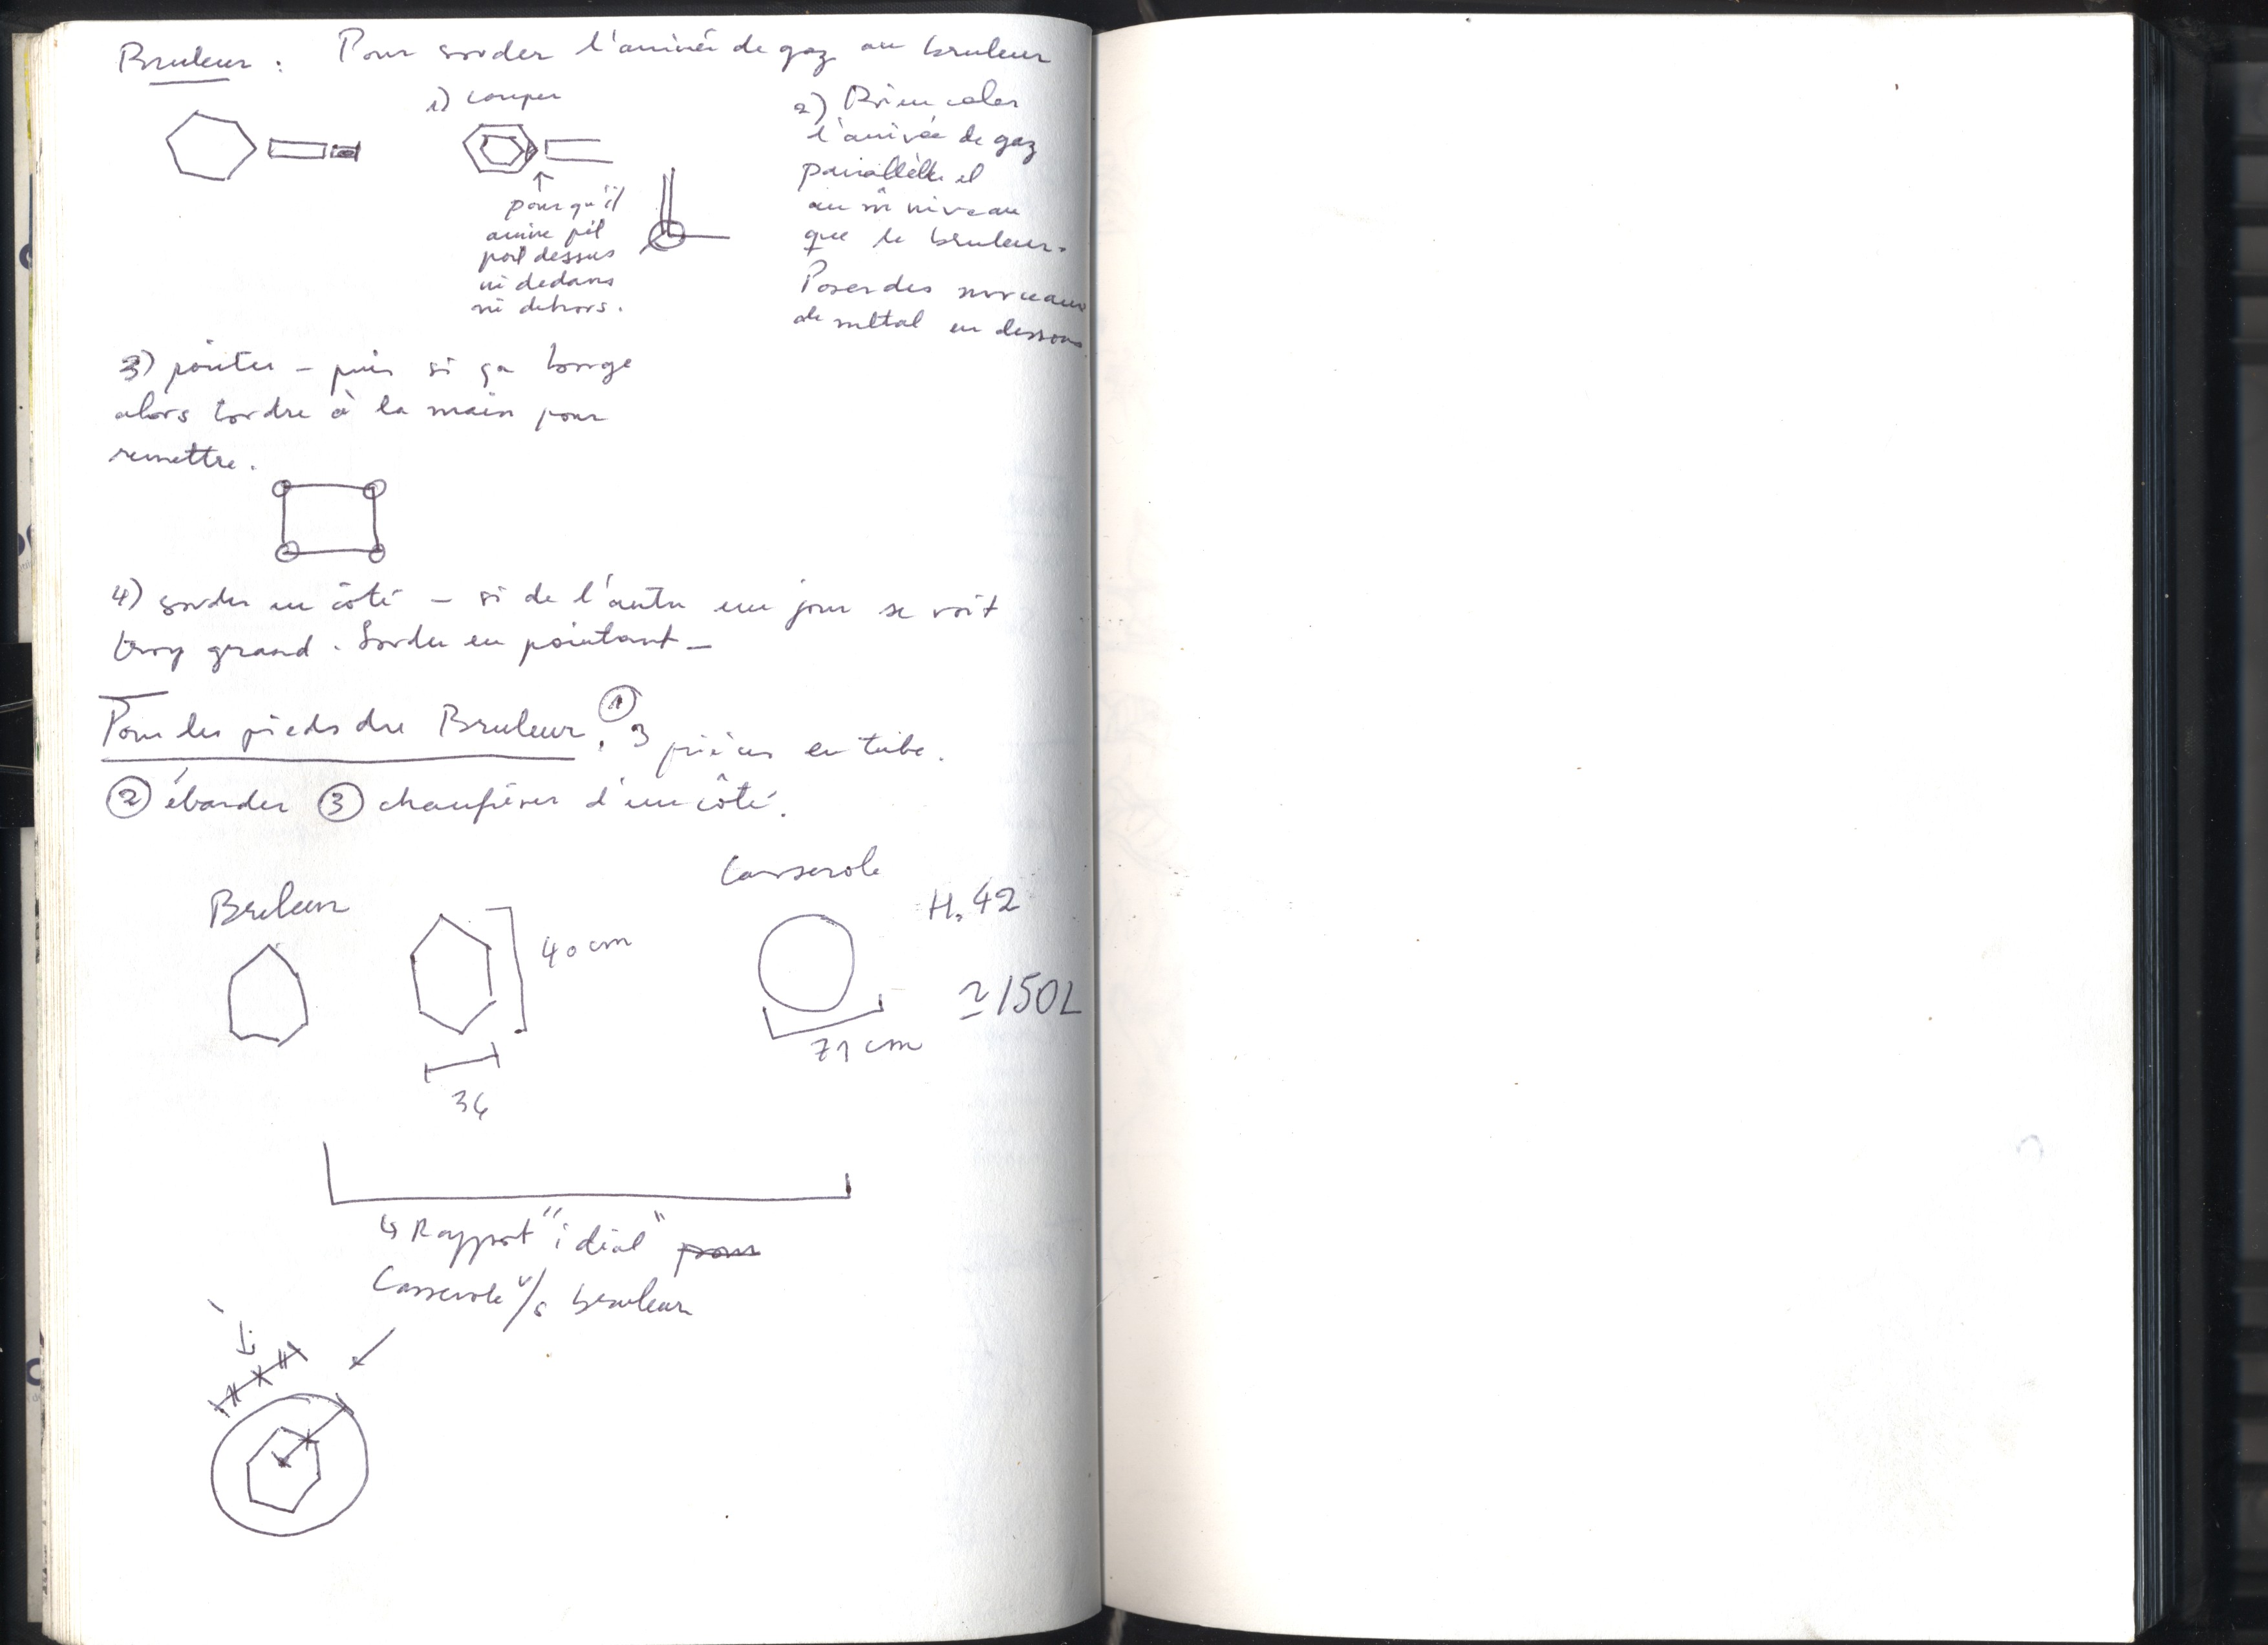 Bruleur : Pour souder l'arrivée de gaz au bruleur
1) couper
pour qu'il
arrive pil
poil dessus
ni dedans
ni dehors.
2) Bien caler
l'arrivée de gaz
parallèle et
au m̂ niveau
que le bruleur.
Poser des morceaux
de métal en dessous.
3) pointer – puis si ça bouge
alors tordre à la main pour
remettre.
4) souder un côté – si de l'autre un jour se voit
trop grand. Souder en pointant –
Pour les pieds du Bruleur. ① 3 pièces en tube.
② ébarder ③ chanfriner d'un côté.
Bruleur
40 cm
36
Casserole
H. 42
≃ 150L
71 cm
↳ Rapport "idéal" pour
Casserole v/s bruleur